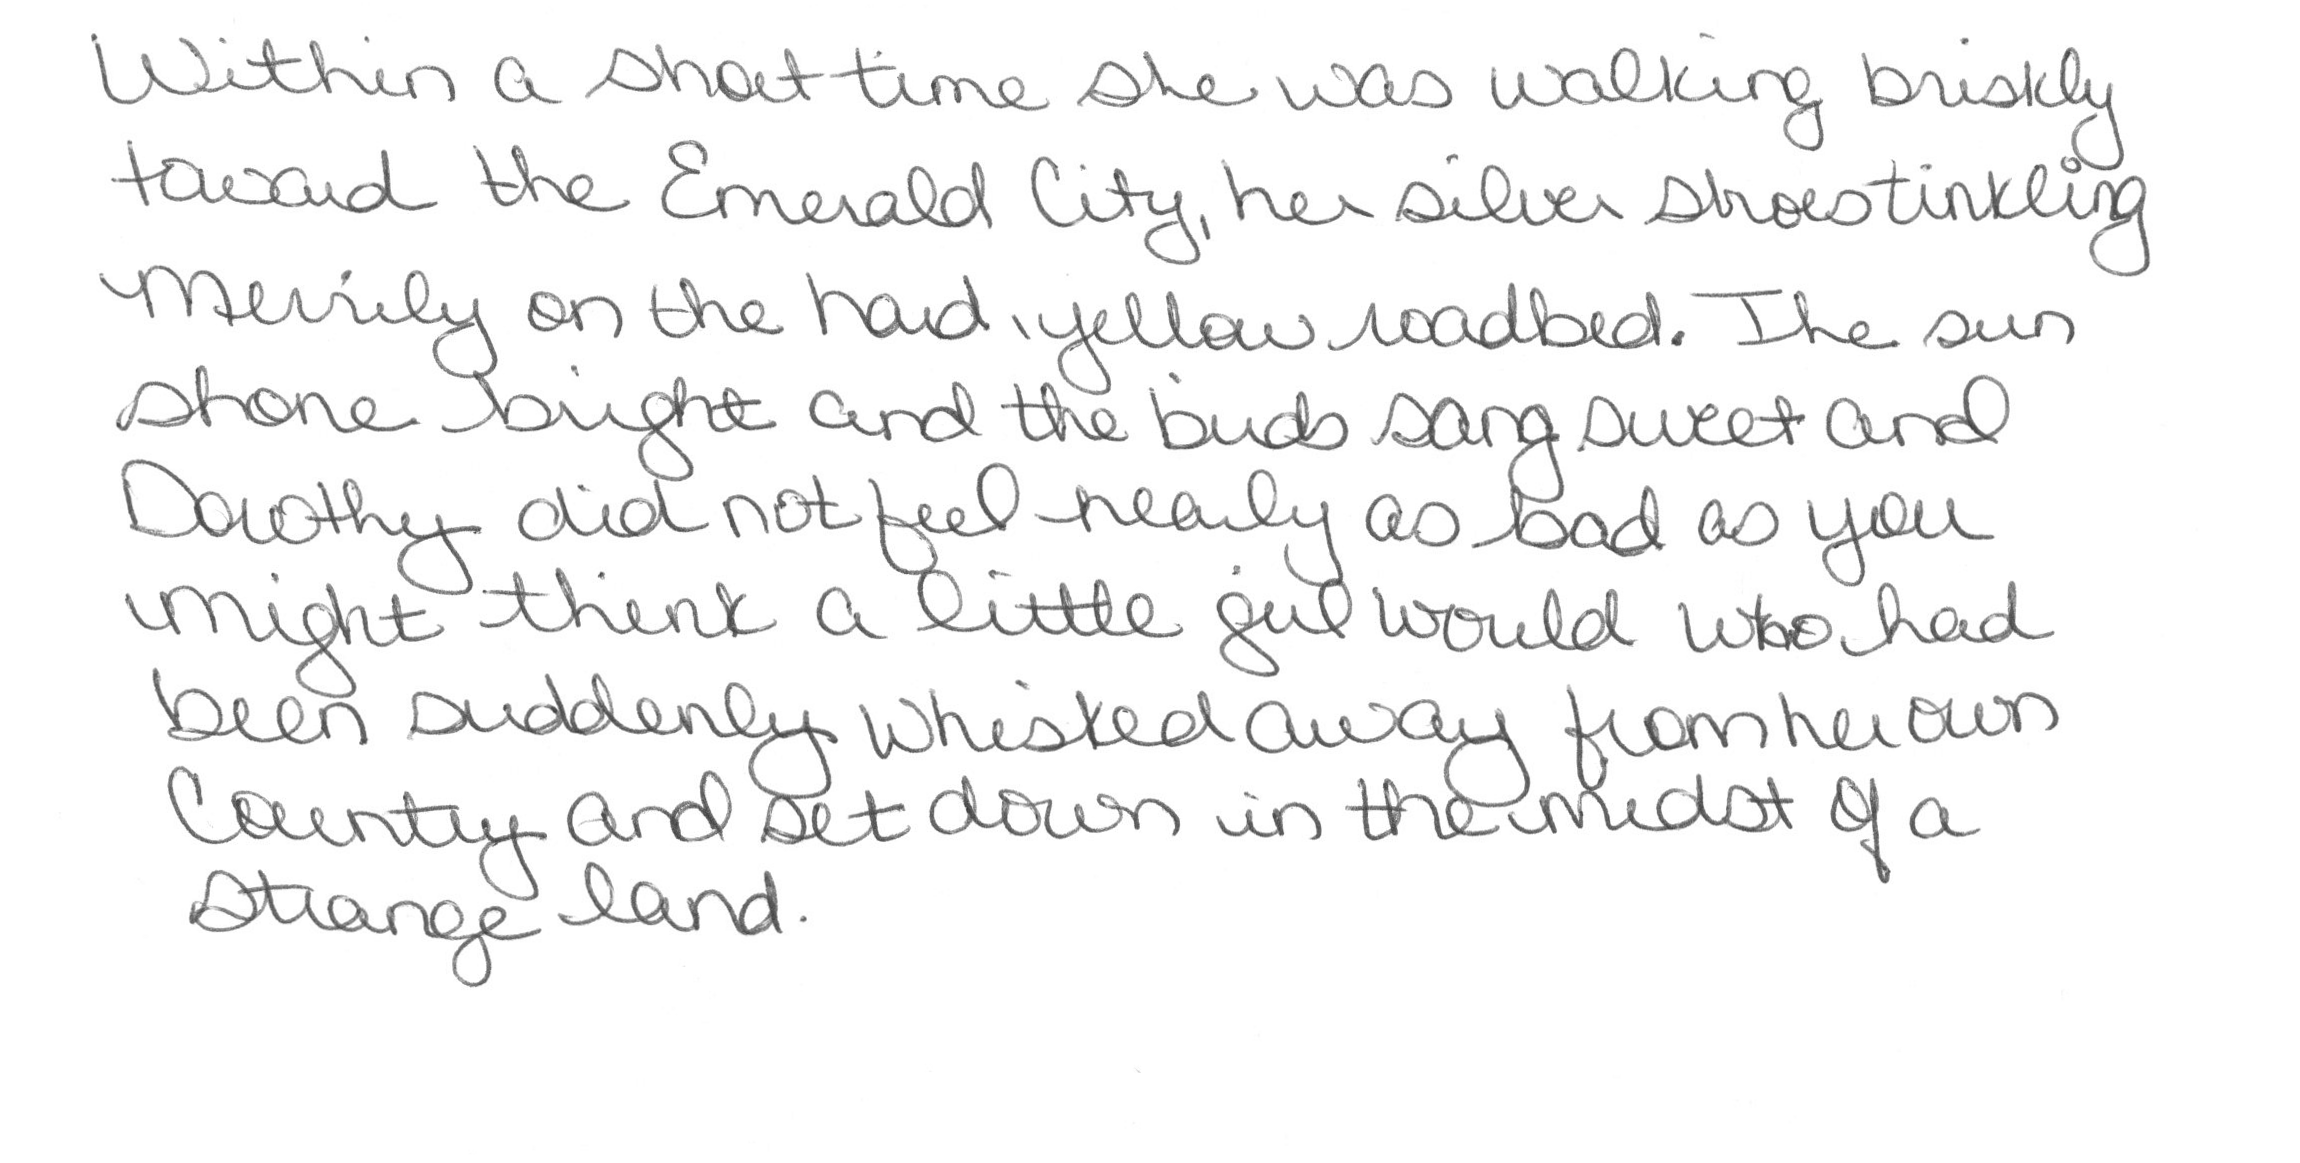 Within a short time she was walking briskly
toward the Emerald City, her silver shoes tinkling
merrily on the hard, yellow roadbed. The sun
shone bright and the birds sang sweet and
Dorothy did not feel nearly as bad as you
might think a little girl would who had
been suddenly whisked away from her own
Country and set down in the midst of a
strange land.